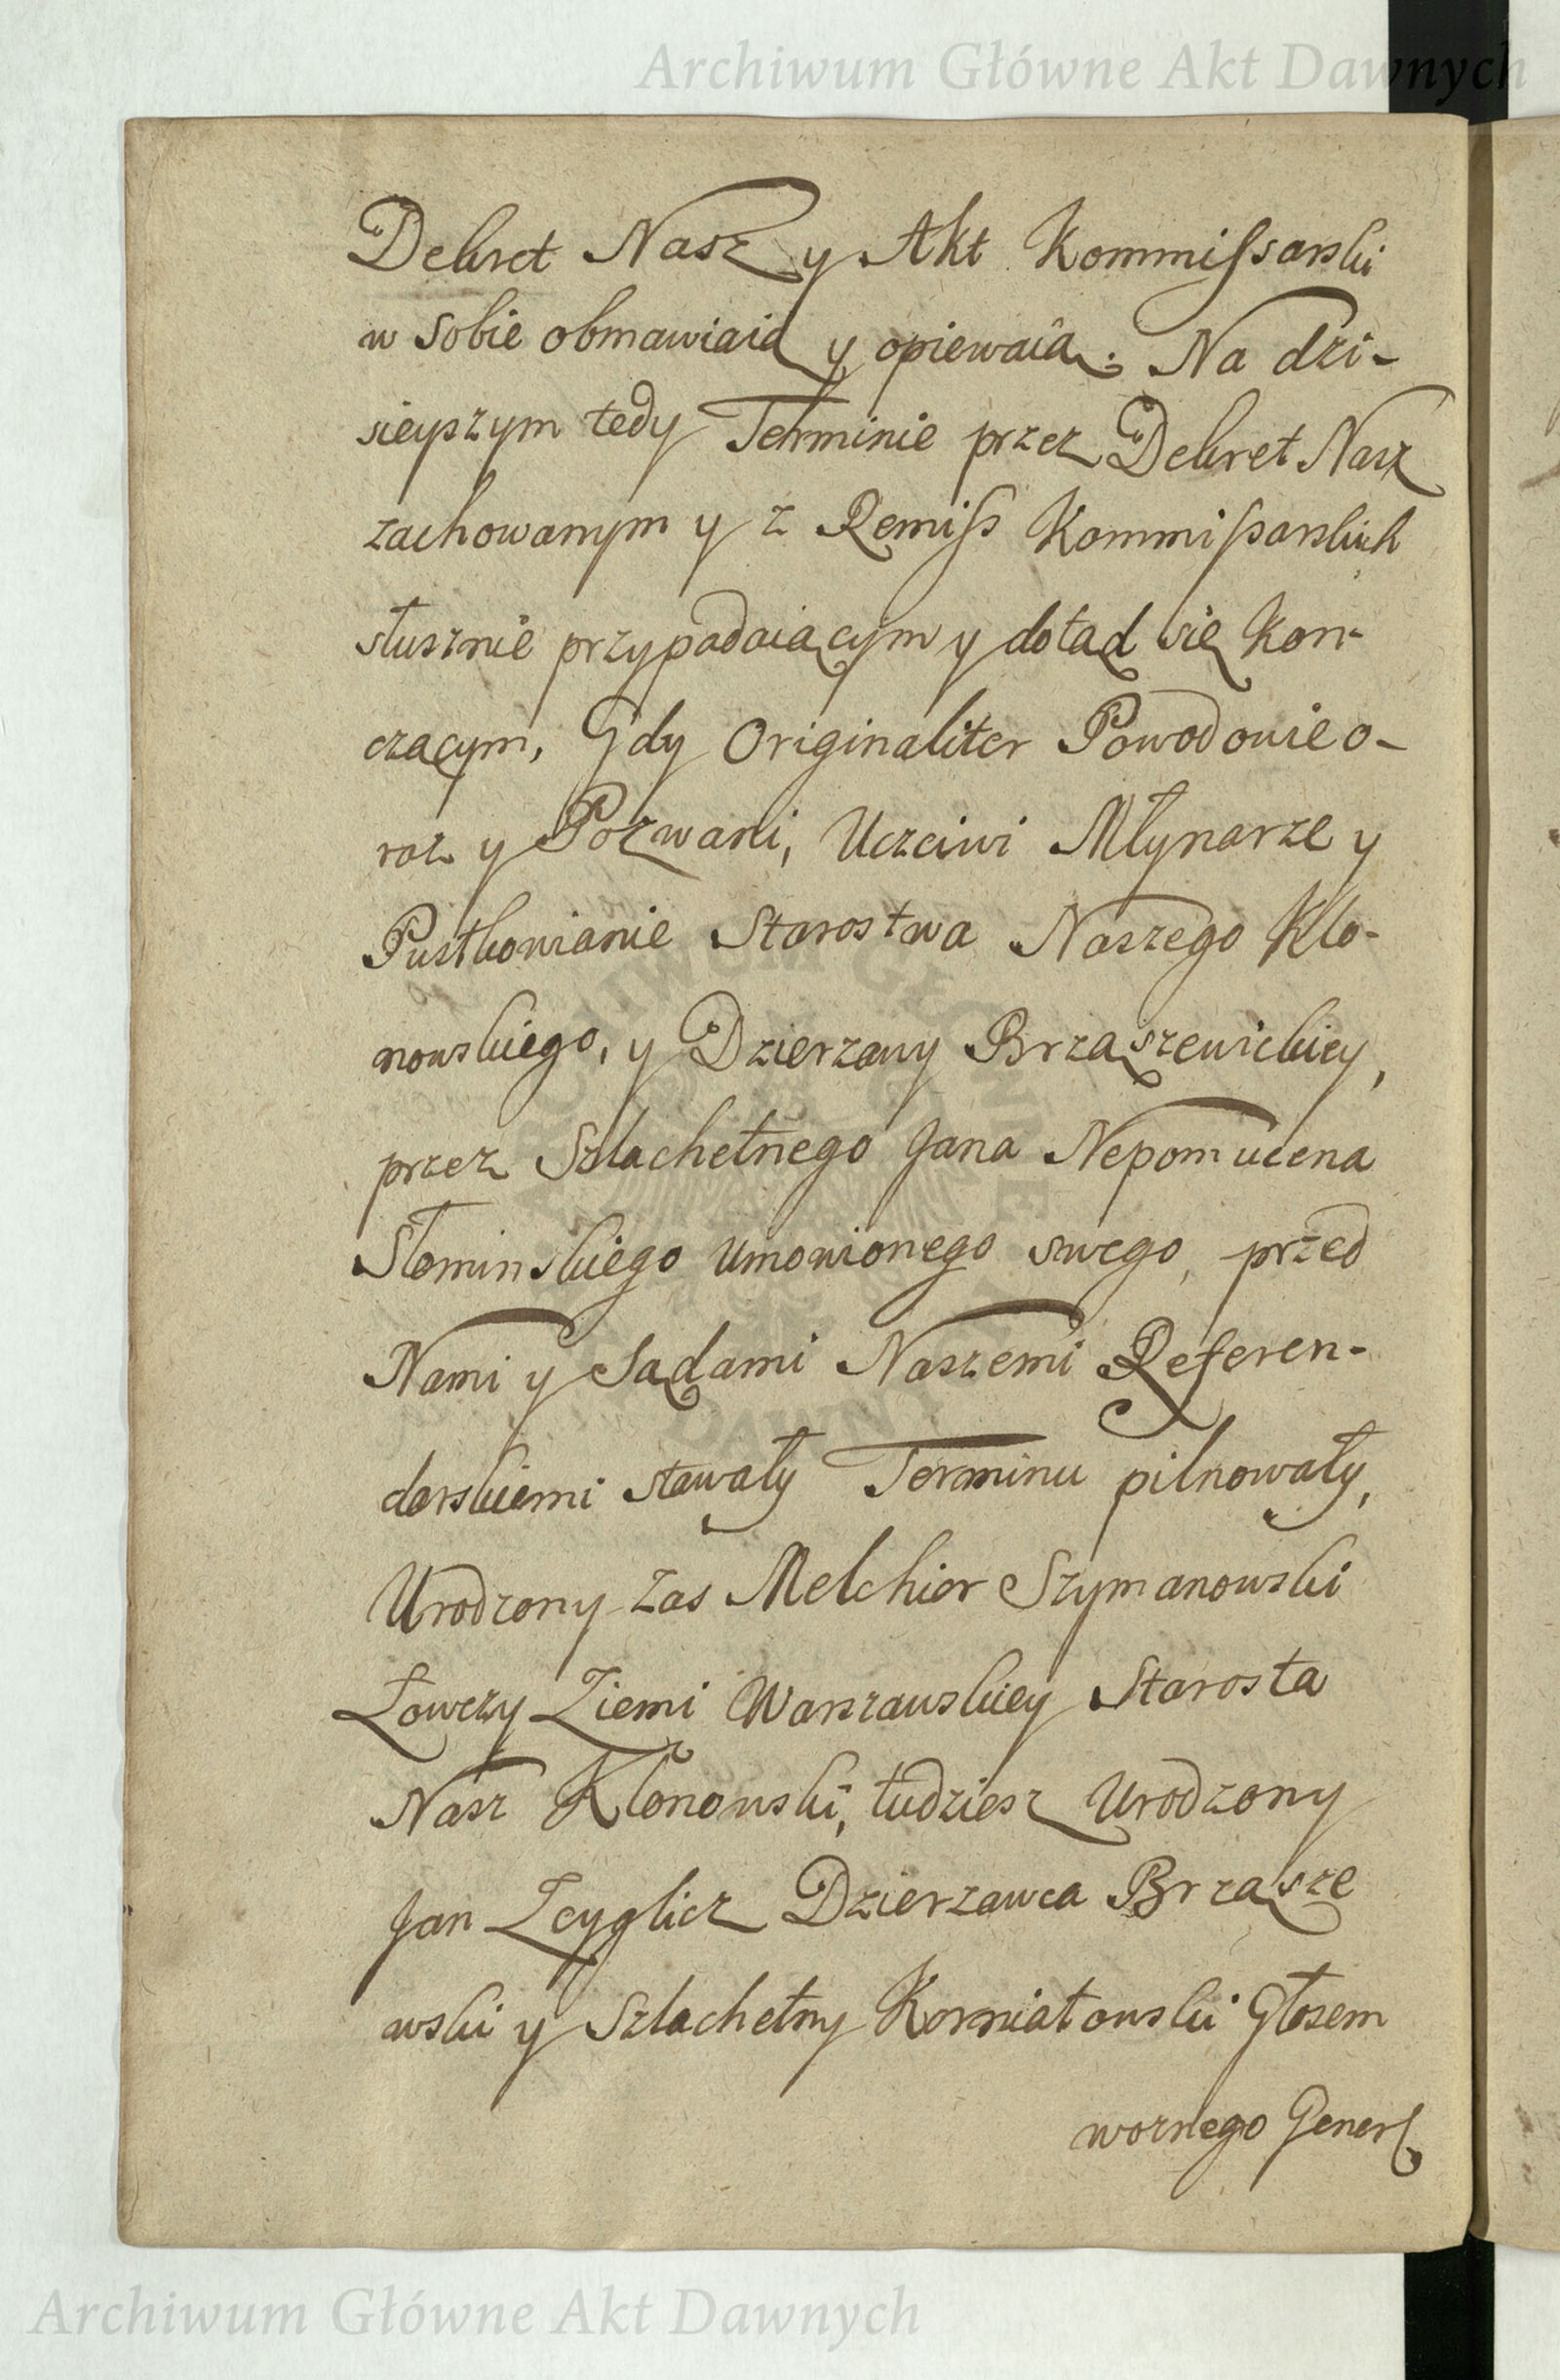 Archiwum Główne Akt Dawnych
Dekret Nasz y Akt Kommissarski
w sobie obmawiaią y opiewaią. Na dzi-
sieyszym tedy Terminie przez Dekret Nasz
zachowanym y z Remiss Kommissarskich
słusznie przypadaiącym y dotąd się kon-
czącym, Gdy Originaliter Powodowie o-
raz y Pozwani, Uczciwi Młynarze y
Pustkowianie Starostwa Naszego Klo-
nowskiego, y Dzierzawy Brząszewickiey,
przez Szlachetnego Jana Nepomucena
Słominskiego Umowionego swego, przed
Nami y Sądami Naszemi Referen-
darskiemi stawały Terminu pilnowały,
Urodzony zas Melchior Szymanowski
Łowczy Ziemi Warszawskiey Starosta
Nasz Klonowski, tudziesz Urodzony
Jan Zcyglicz Dzierzawca Brząsze
wski y Szlachetny Korniatowski Głosem
woznego Generł
ARCHIWUM GŁÓWNE AKT DAWNYCH
Archiwum Główne Akt Dawnych